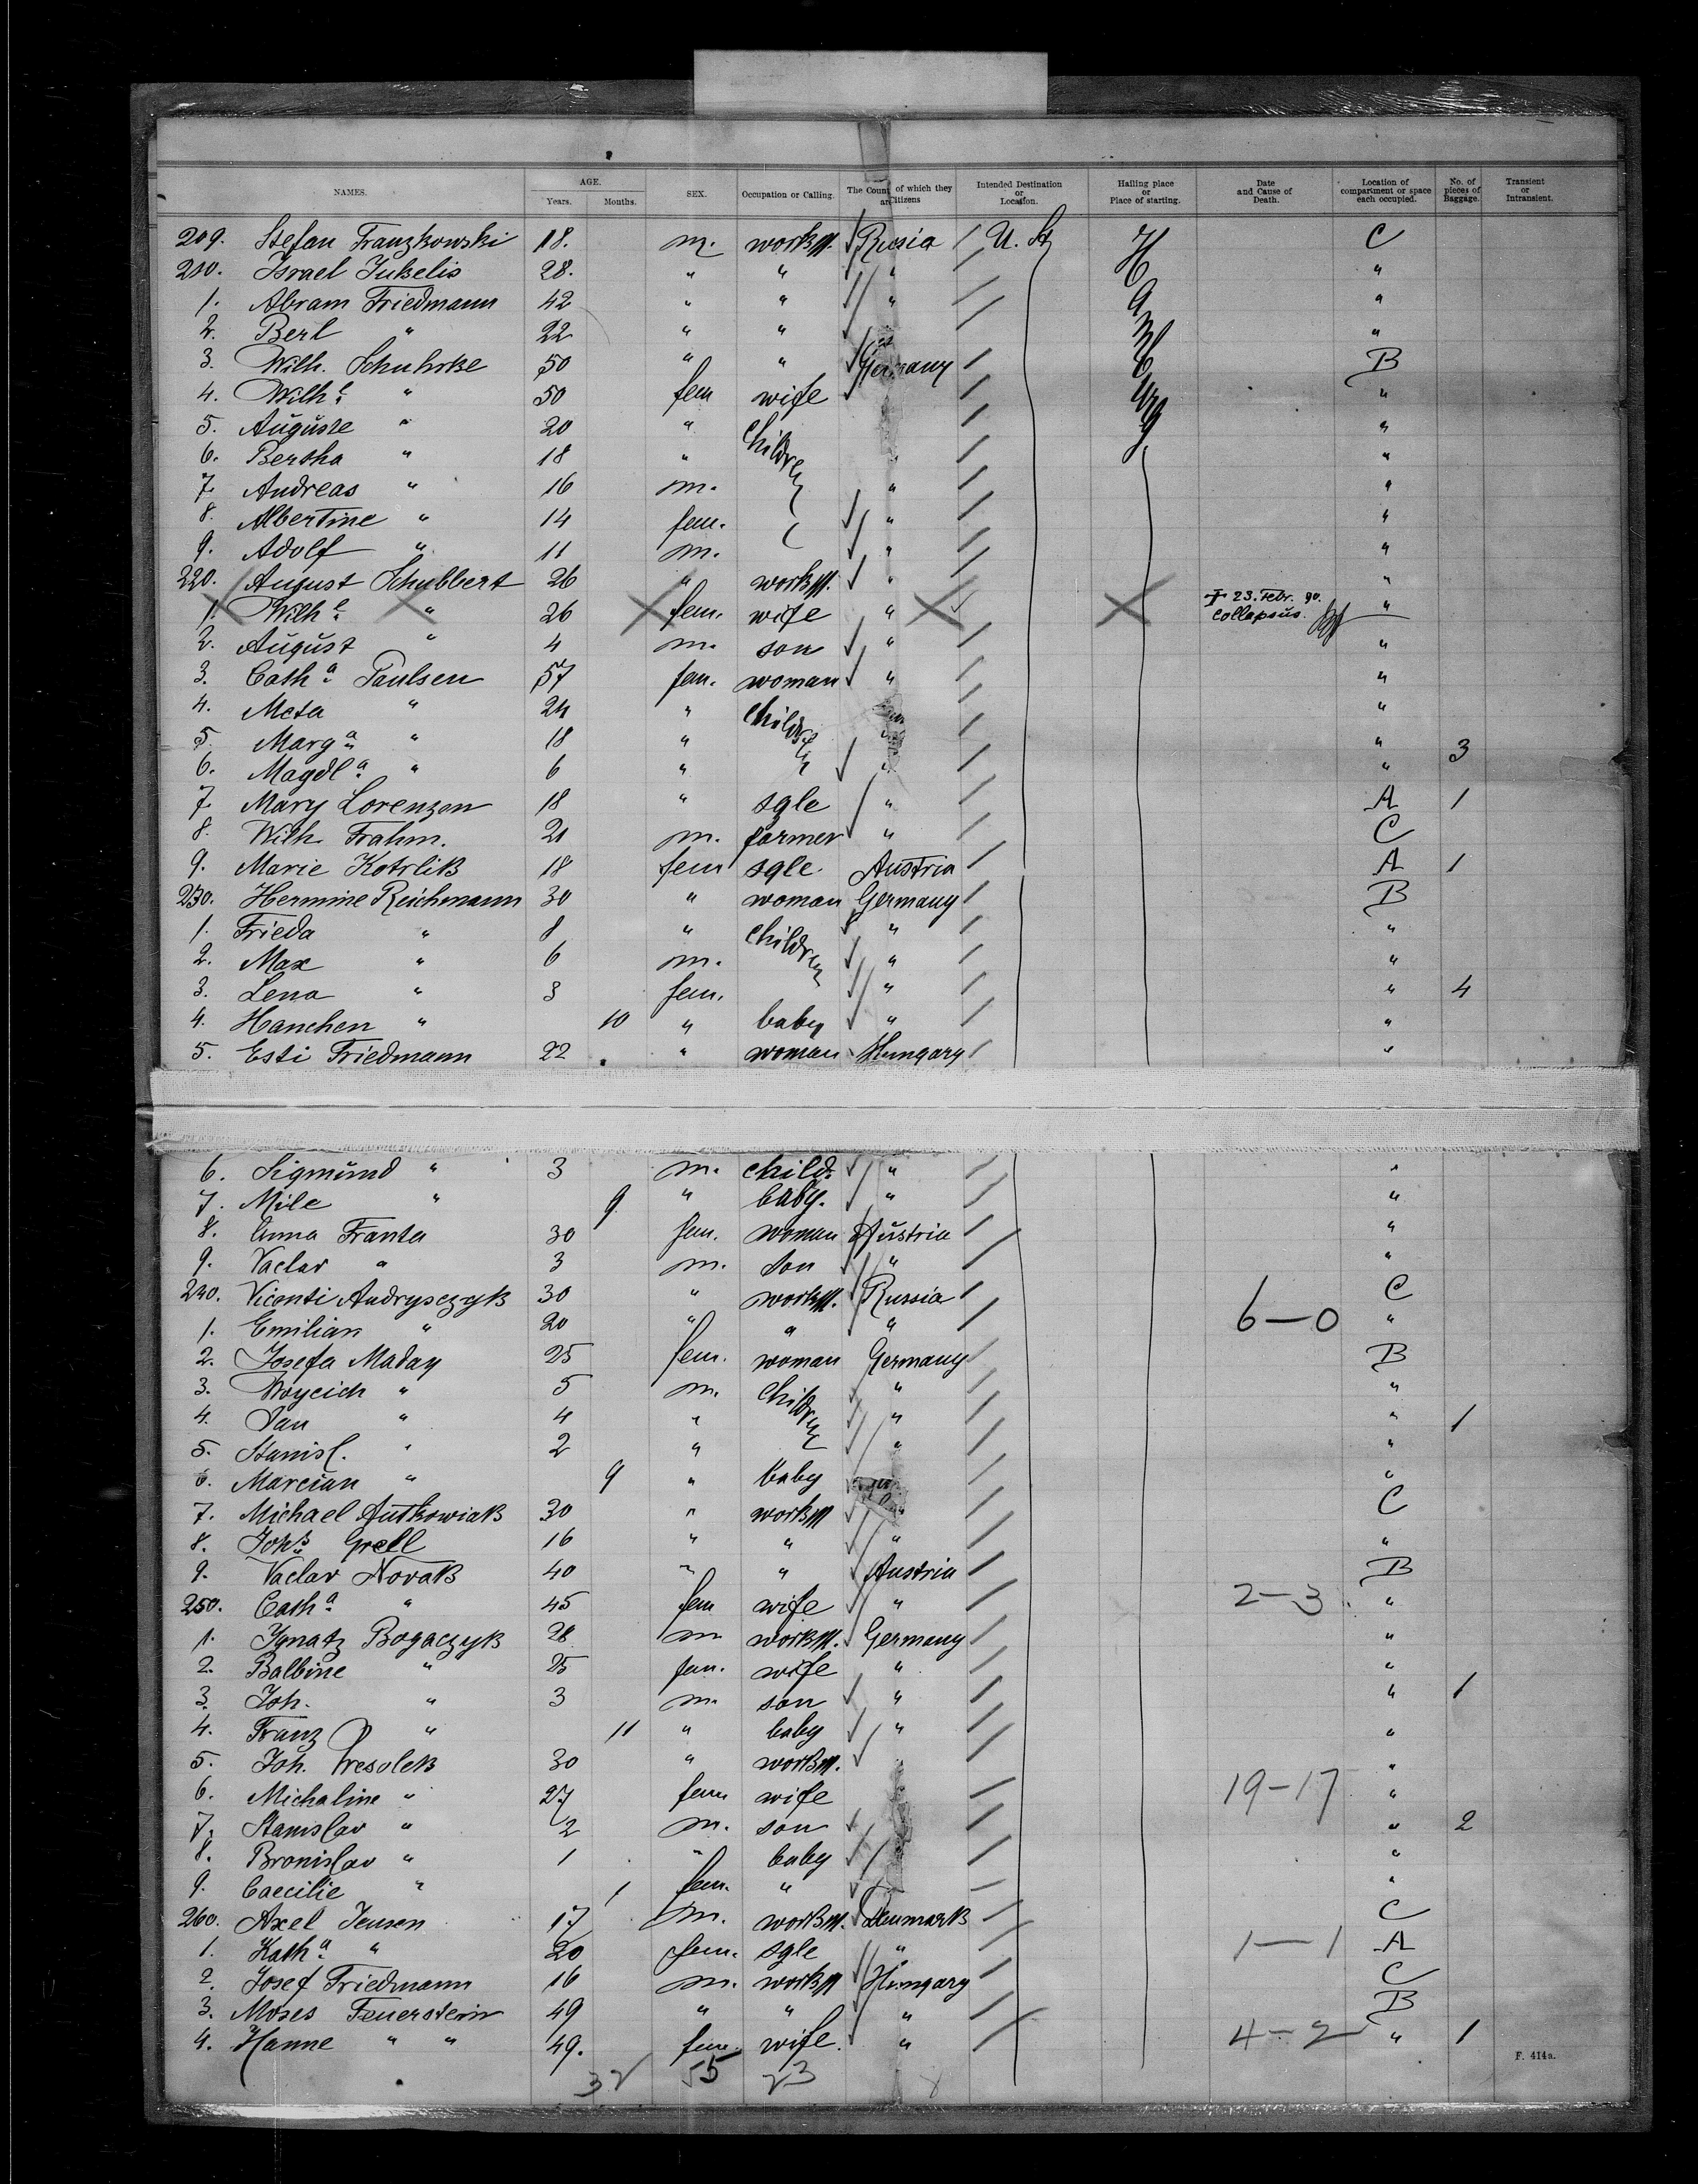 NAMES. AGE. SEX. Occupation or Calling. The Count of which they are Citizens Intended Destination or Location. Hailing place or Place of starting. Date and Cause of Death. Location of compartment or space each occupied. No. of pieces of Baggage. Transient or Intransient.
Years. Months.
209. Stefan Franzkowski 18. m. workm. Russia U. St. Hamburg C
210. Israel Jukelis 28. " " " "
1. Abram Friedmann 42 " " " "
2. Berl " 22 " " "
3. Wilh. Schuhrke 50 " " Germany B
4. Wilh e " 50 fem wife "
5. Auguste " 20 " children "
6. Bertha " 18 " " "
7. Andreas " 16 m. " "
8. Albertine " 14 fem. " "
9. Adolf " 11 m. " "
220. August Schubbert 26 " workm. " "
1. Wilh e " 26 fem. wife " † 23. Febr. 90. Collapsus. "
2. August " 4 m. son " "
3. Cath a Paulsen 57 fem. woman " "
4. Meta " 24 " children "
5. Marg a " 18 " " " 3
6. Magdl a " 6 " " "
7. Mary Lorenzen 18 " sgle " A 1
8. Wilh. Frahm. 21 m. farmer " C
9. Marie Kotrlik 18 fem sgle. Austria A 1
230. Hermine Reichmann 30 " woman Germany B
1. Frieda " 8 " children " "
2. Max " 6 m. " "
3. Lena " 3 fem. " " 4
4. Hanchen " 10 " baby " "
5. Esti Friedmann 22 " woman Hungary "
6. Sigmund " 3 m. child. " "
7. Mile " 9 " baby. " "
8. Anna Franta 30 fem. woman Austria "
9. Vaclav " 3 m. son " "
240. Viconti Andrysczyk 30 " workm. Russia C
1. Emilian " 20 " " " 6-0 "
2. Josefa Maday 25 fem. woman Germany B
3. Woycich " 5 m. children " "
4. Jan " 4 " " " 1
5. Stanisl. " 2 " " "
6. Marcian " 9 " baby "
7. Michael Autkowiak 30 " workm " C
8. Johs Grell 16 " " " "
9. Vaclav Novak 40 " " Austria B
250. Cath a " 45 fem wife " 2-3 "
1. Ignatz Bogaczyk 28 m workm. Germany "
2. Balbine " 25 fem. wife " "
3. Joh. " 3 m. son " " 1
4. Franz " 11 " baby " "
5. Joh. Presolek 30 " workm. "
6. Michaline " 27 fem wife 19-17 "
7. Stanislav " 2 m. son " 2
8. Bronislav " 1 " baby "
9. Caecilie " 1 fem. " "
260. Axel Jensen 17 m. workm. Denmark C
1. Kath a " 20 fem. sgle " 1-1 A
2. Josef Friedmann 16 m. workm Hungary C
3. Moses Feuerstein 49 " " " B
4. Hanne " " 49. fem. wife. " 4-2 " 1
F. 414a.
32 55 23